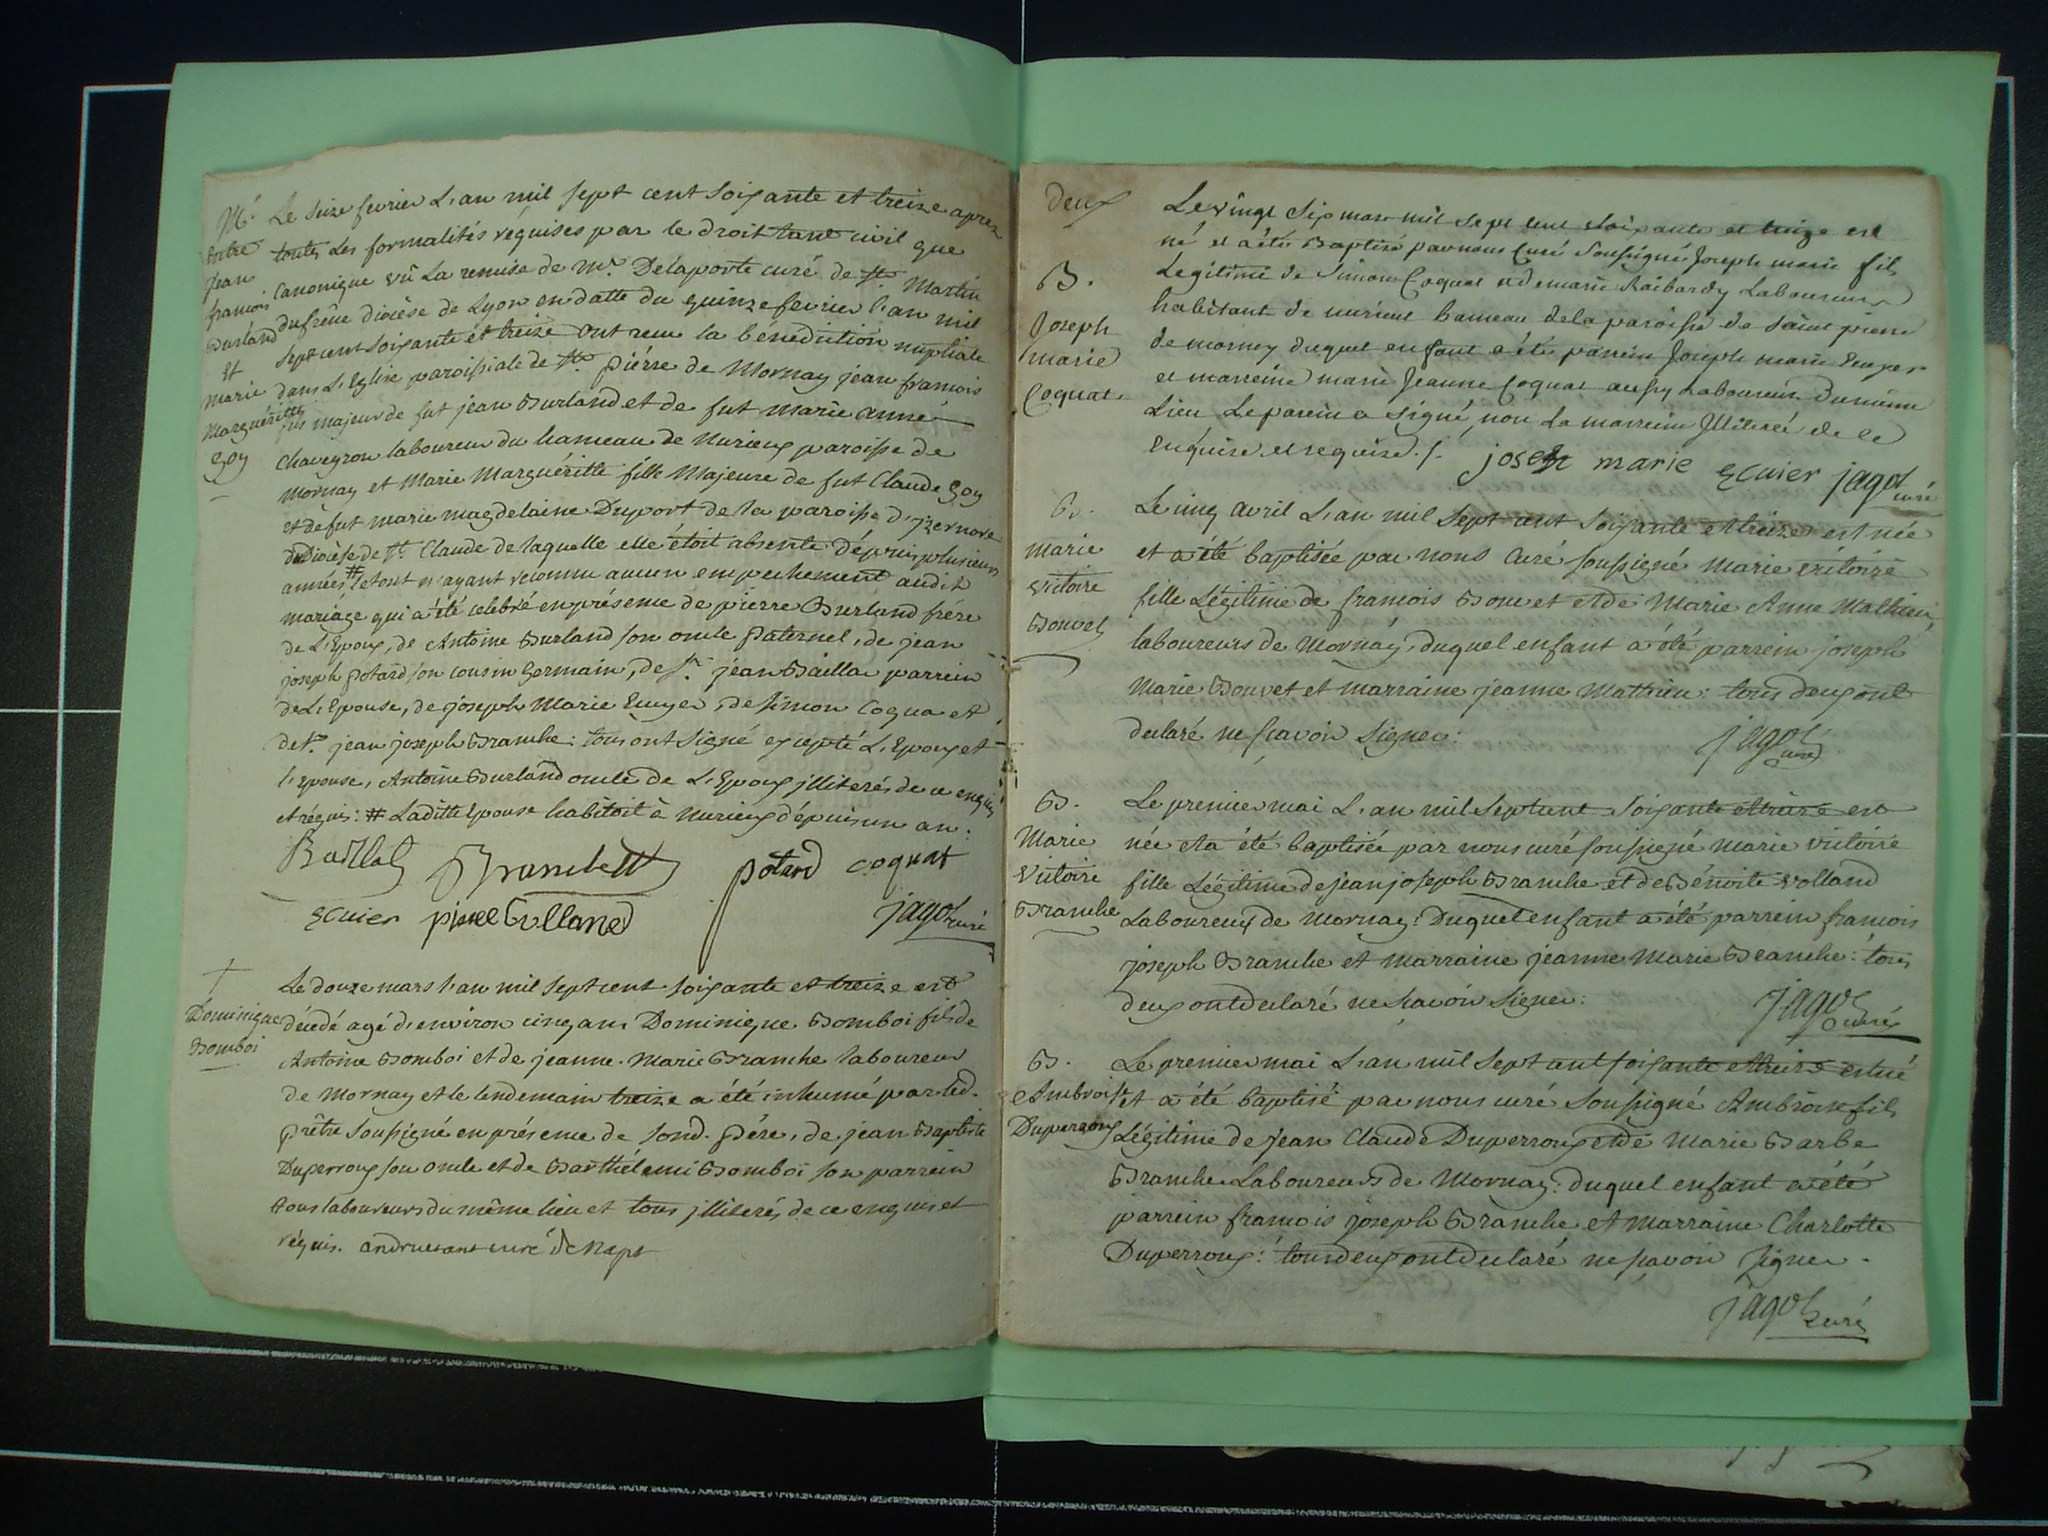 M.
entre
jean
francois
Burland
Et
marie
Marguéritte
Goy
Le seize fevrier L'an mil sept cent soixante et treize aprez
toutes Les formalités réquises par le droit tant civil que
canonique vû La remise de Mr. Delaporte curé de St. Martin
dufrêne diocèse de Lyon en datte du quinze fevrier l'an mil
sept cent soixante et treize ont recu la bénédiction nuptiale
dans L'Eglise paroissiale de St. piérre de Mornay jean francois
fils majeur de fut jean Burland et de fut marie anne
chaveyron laboureur du hameau de Nurieux paroisse de
Mornay et Marie Marguéritte fille Majeure de fut Claude Goy
et de fut marie magdelaine Duport de la paroisse d'yzernore
du Diocèse de St. Claude de laquelle elle étoit absente dépuis plusieurs
années # le tout n'ayant reconnu aucun empechement audit
mariage qui a été celebré en présence de pierre Burland frére
de L'Epoux, de Antoine Burland son oncle paternel, de jean
joseph potard son cousin Germain, de Sr. jean Baillat parrein
de L'Epouse, de joseph Marie Ecuyer, de simon Coqua et
de Sr. jean joseph Branche: tous ont signé excepté L'Epoux et
l'Epouse, Antoine Burland oncle de L'Epoux illiterés de ce enquis
et réquis: # Laditte Epouse habitoit à Nurieux dépuis un an.
Baillat Branche potard coquat
Ecuier pierre Burland jagot curé
Dominique
Bomboi
Le douze mars l'an mil sept cent soixante et treize est
décédé agé d'environ cinq ans Dominique Bomboi fils de
Antoine Bomboi et de jeanne Marie Branche laboureur
de Mornay et le lendemain treize a été inhumé par led.
prêtre soussigné en présence de sond. pére, de jean Baptiste
Duperroux son oncle et de Barthélemi Bomboi son parrein
tous laboureurs du même lieu et tous illiterés de ce enquis et
réquis. andruetant curé de Napt
deux
B.
Joseph
marie
Coquat
Le vingt six mars mil sept cent soixante et treize est
né et a été Baptisé par nous Curé Soussigné Joseph marie fils
Legitime de Simon Coquat et de marie Raibardy Laboureurs
habitant de nurieux hameau de la paroisse de saint pierre
de mornay duquel enfant a été parrein Joseph marie Ecuyer
et marreine marie Jeanne Coquat aussy Laboureurs du même
Lieu Le parein a Signé, non La marreine Illiterée de ce
enquise et requise ./. joseph marie Ecuier jagot curé
B.
marie
victoire
Bouvet
Le cinq avril L'an mil sept cent soixante et treize est née
et a été baptisée par nous curé soussigné Marie victoire
fille Légitime de francois Bouvet et de Marie Anne Mathieu
laboureurs de Mornay, duquel enfant a été parrein joseph
Marie Bouvet et marraine jeanne Matthieu: tous deux ont
declaré ne scavoir signer:
jagot
curé
B.
Marie
Victoire
Branche
Le premier mai L'an mil sept cent soixante et treize est
née et a été baptisée par nous curé soussigné Marie victoire
fille Légitime de jean joseph Branche et de Bénoite Volland
Laboureux de Mornay: Duquel enfant a été parrein francois
joseph Branche et Marraine jeanne Marie Branche: tous
deux ont declaré ne scavoir signer:
jagot
curé
B.
Ambroise
Duperroux
Le premier mai L'an mil sept cent soixante et treize est né
et a été baptisé par nous curé soussigné Ambroise fils
Légitime de jean Claude Duperroux et de Marie Barbe
Branche Laboureurs de Mornay: duquel enfant a été
parrein francois joseph Branche et Marraine Charlotte
Duperroux: tous deux ont declaré ne scavoir signer.
jagot
curé